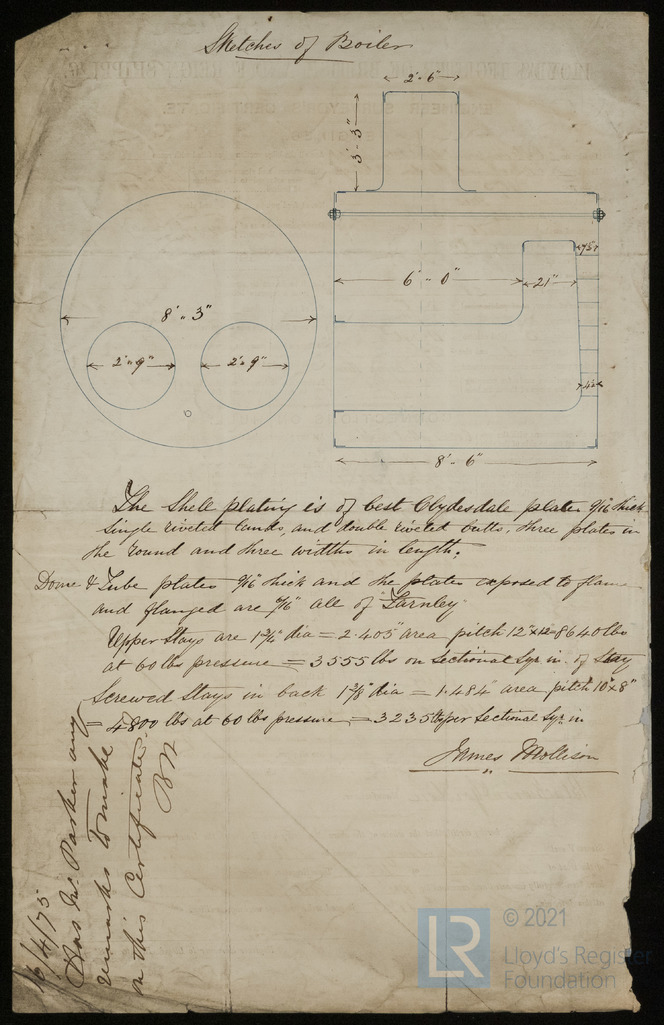 Sketches of Boiler
2'-6"
3'-3"
7½"
6'-0"
21"
8'-3"
2'-9"
2'-9"
8'-6"
The Shell plating is of best Clydesdale plates 9/16 thick
Single riveted lands, and double riveted butts, three plates in
the round and three widths in length.
Dome & Tube plates 9/16 thick and the plates exposed to flame
and flanged are 7/16" all of Farnley
Upper Stays are 1¾" dia = 2.405" area pitch 12"x12=8640 lbs
at 60 lbs pressure = 3555 lbs on Sectional Sqr in. of Stay
Screwed Stays in back 1⅜" dia = 1.484" area, pitch 10"x8"
= 4800 lbs at 60 lbs pressure = 3235 lbs per Sectional Sqr in
James Mollison
16/4/75
Has Mr Parker any
remarks to make
on this Certificate.
BM
LR
© 2021
Lloyd's Register
Foundation